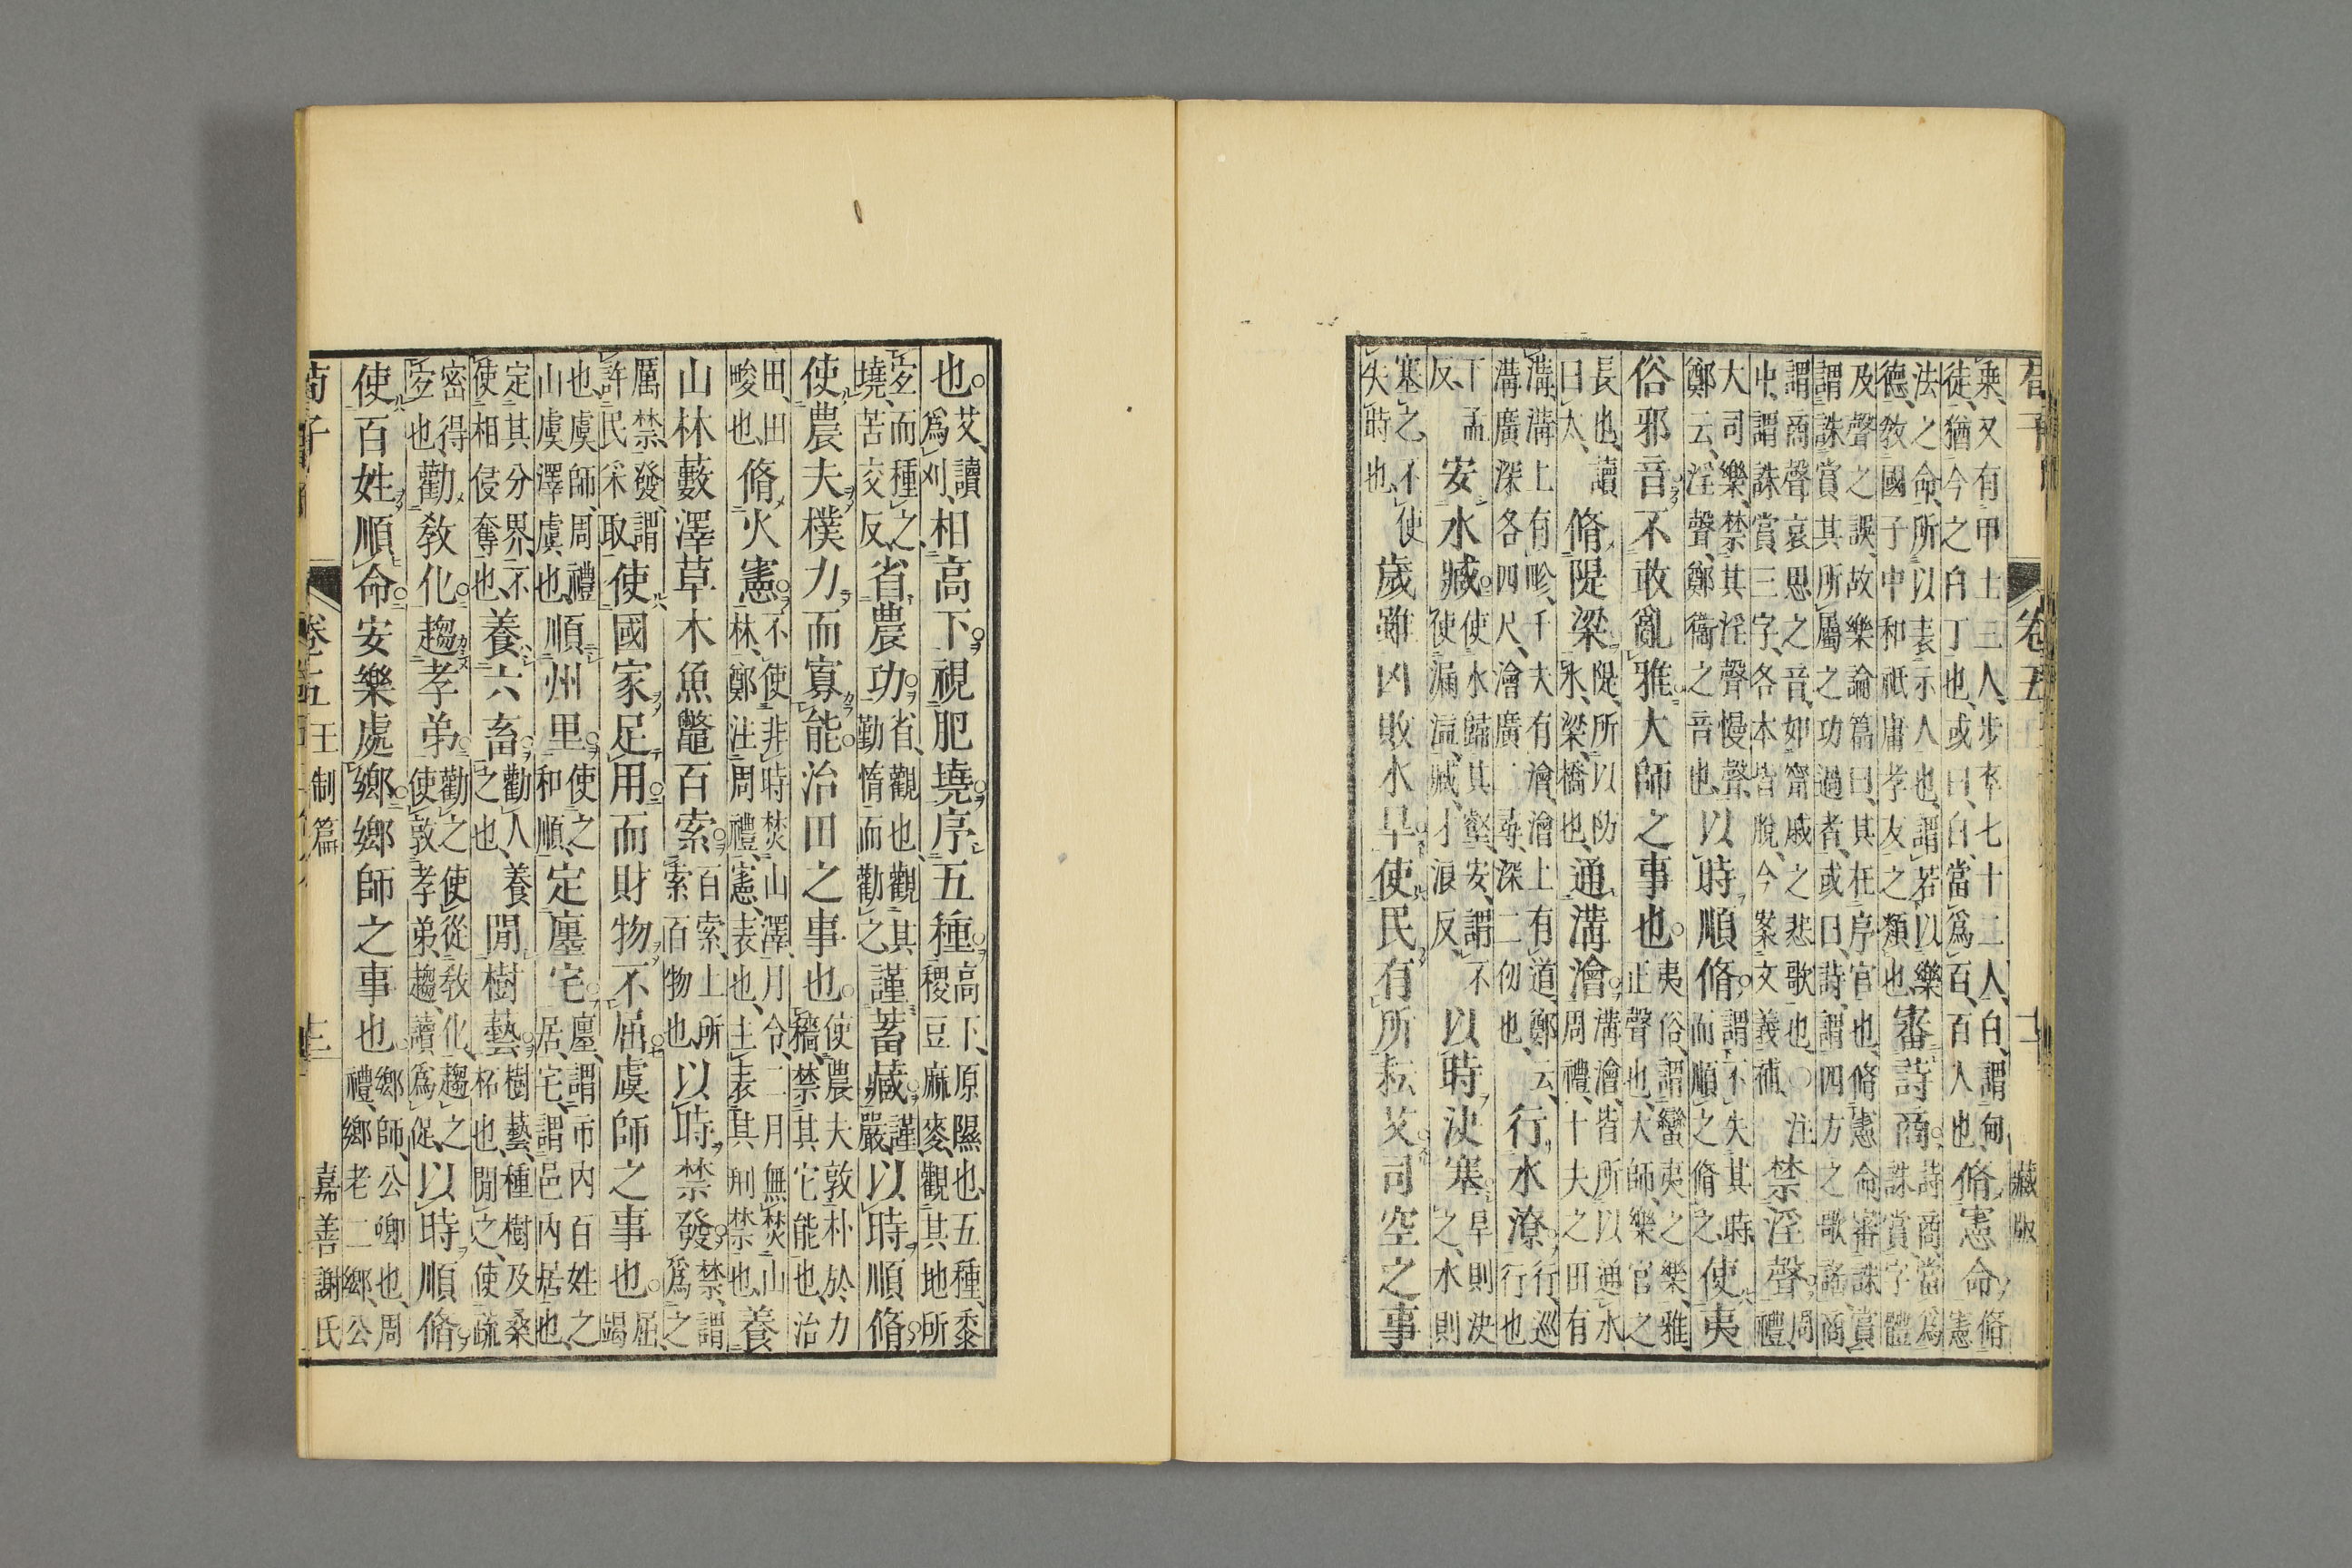 卷五 藏版
乘又有甲士三人步卒七十二人白謂甸徒猶今之白丁也或曰白當爲百百人也脩憲命脩憲
法之命所以表示人也謂若以樂德教國子中和祗庸孝友之類也審詩商詩商當爲誅賞字體
及聲之誤故樂論篇曰其在序官也脩憲命審誅賞謂誅賞其所屬之功過者或曰詩謂四方之歌謠商
謂商聲哀思之音如甯戚之悲歌也○注中謂誅賞三字各本皆脫今案文義補禁淫聲周禮
大司樂禁其淫聲慢聲鄭云淫聲鄭衞之音也以時順脩謂不失其時而順之脩之使夷
俗邪音不敢亂雅大師之事也夷俗謂蠻夷之樂雅正聲也大師樂官之
長也讀曰太脩隄梁隄所以防水梁橋也通溝澮溝澮皆所以通水周禮十夫之田有
溝溝上有畛千夫有澮澮上有道鄭云溝廣深各四尺澮廣二尋深二仞也行水潦行巡行也
下孟反安水臧使水歸其壑安謂不使漏溢臧才浪反以時決塞旱則決之水則
塞之不使失時也歲雖凶敗水旱使民有所耘艾司空之事
也艾讀爲刈相高下視肥墝序五種高下原隰也五種黍稷豆麻麥觀其地所
宐而種之墝苦交反省農功省觀也觀其勤惰而勸之謹蓄藏謹嚴以時順脩
使農夫樸力而寡能治田之事也使農夫敦朴於力穡禁其它能也治
田田畯也脩火憲不使非時焚山澤月令二月無焚山林鄭注周禮憲表也主表其刑禁也養
山林藪澤草木魚鼈百索百索上所索百物也以時禁發禁謂爲之
厲禁發謂許民采取使國家足用而財物不屈虞師之事也屈竭
也虞師周禮山虞澤虞也順州里使之和順定廛宅廛謂市內百姓之居宅謂邑內居也
定其分界不使相侵奪也養六畜勸人養之也閒樹藝樹藝種樹及桑柘也閒之使疏
密得宐也勸教化趨孝弟勸之使從教化趨之使敦孝弟趨讀爲促以時順脩
使百姓順命安樂處鄉鄉師之事也鄉師公卿也周禮鄉老二鄉公
荀子 卷五 王制篇 嘉善謝氏